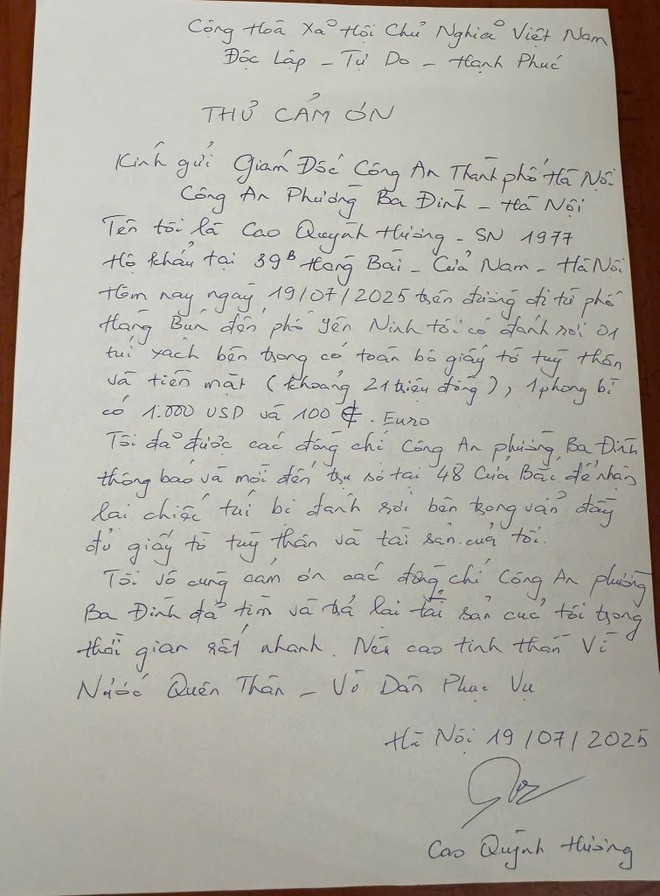 Cộng Hoà Xã Hội Chủ Nghĩa Việt Nam
Độc Lập - Tự Do - Hạnh Phúc
THƯ CẢM ƠN
Kính gửi Giám Đốc Công An Thành phố Hà Nội
Công An Phường Ba Đình - Hà Nội
Tên tôi là Cao Quỳnh Hương - SN 1977
Hộ khẩu tại 39B Hàng Bài - Cửa Nam - Hà Nội
Hôm nay ngày 19/07/2025 trên đường đi từ phố
Hàng Bún đến phố Yên Ninh tôi có đánh rơi 01
túi xách bên trong có toàn bộ giấy tờ tuỳ thân
và tiền mặt (khoảng 21 triệu đồng), 1 phong bì
có 1.000 USD và 100 €. Euro
Tôi đã được các đồng chí Công An phường Ba Đình
thông báo và mời đến trụ sở tại 48 Cửa Bắc để nhận
lại chiếc túi bị đánh rơi bên trong vẫn đầy
đủ giấy tờ tuỳ thân và tài sản của tôi.
Tôi vô cùng cám ơn các đồng chí Công An phường
Ba Đình đã tìm và trả lại tài sản của tôi trong
thời gian rất nhanh. Nêu cao tinh thần Vì
Nước Quên Thân - Vì Dân Phục Vụ
Hà Nội 19/07/2025
Cao Quỳnh Hương